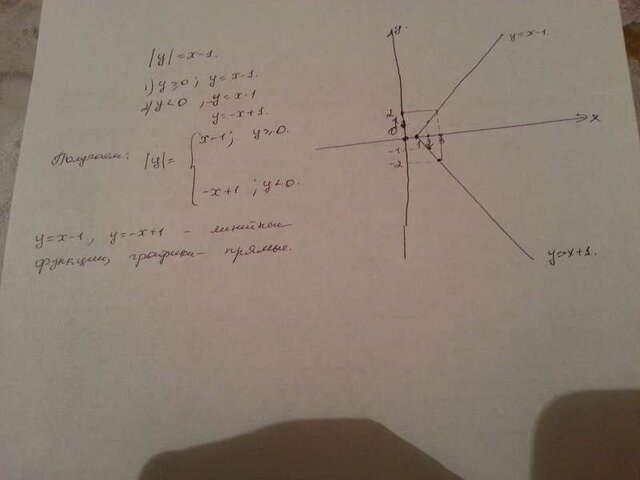 |y|=x-1.
1) y≥0; y=x-1.
2) y<0, -y=x-1
y=-x+1.
Получаем: |y|= { x-1; y≥0.
-x+1; y<0.
y=x-1, y=-x+1 - линейные
функции, графики - прямые.
y
y=x-1
2
1
0
x
1
2
3
-1
-2
y=-x+1.